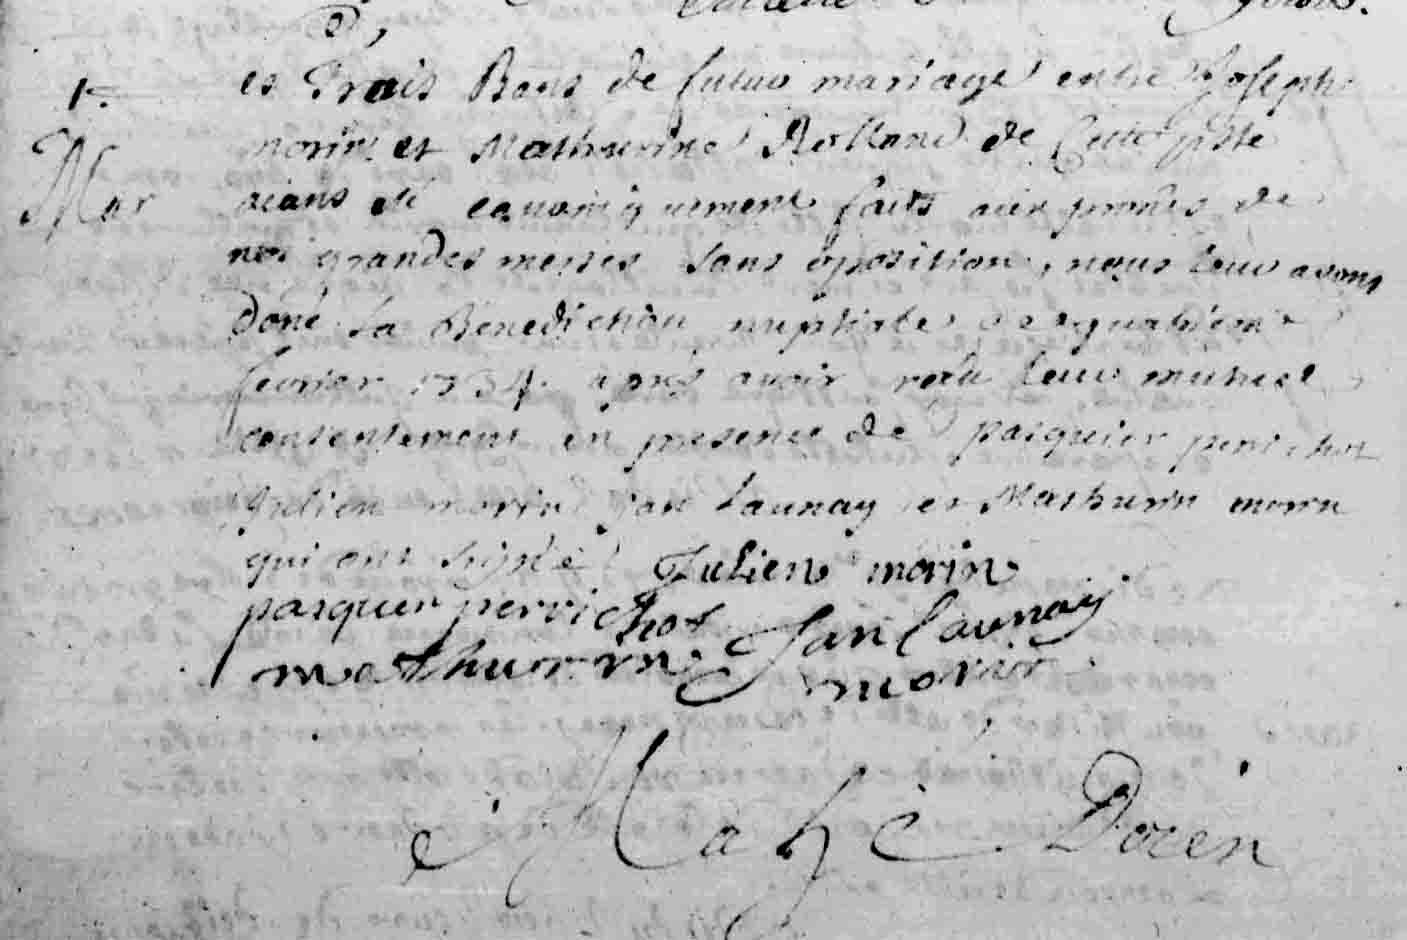 1r.
Mar
Les Trois Bans de futur mariage entre Joseph
morin et Mathurine Rolland de Cette psse
aians eté canoniquement faits aux prones de
nos grandes messes sans oposition, nous leur avons
doné la Benediction nuptiale ce quatrieme
fevrier 1734. apres avoir redu leur mutuel
consentement en presence de pasquier perichot
Julien morin jan Launay et Mathurin morin
qui ont signé Julien morin
pasquier perrichot Jan launay
mathurin morin
Mahé Doien